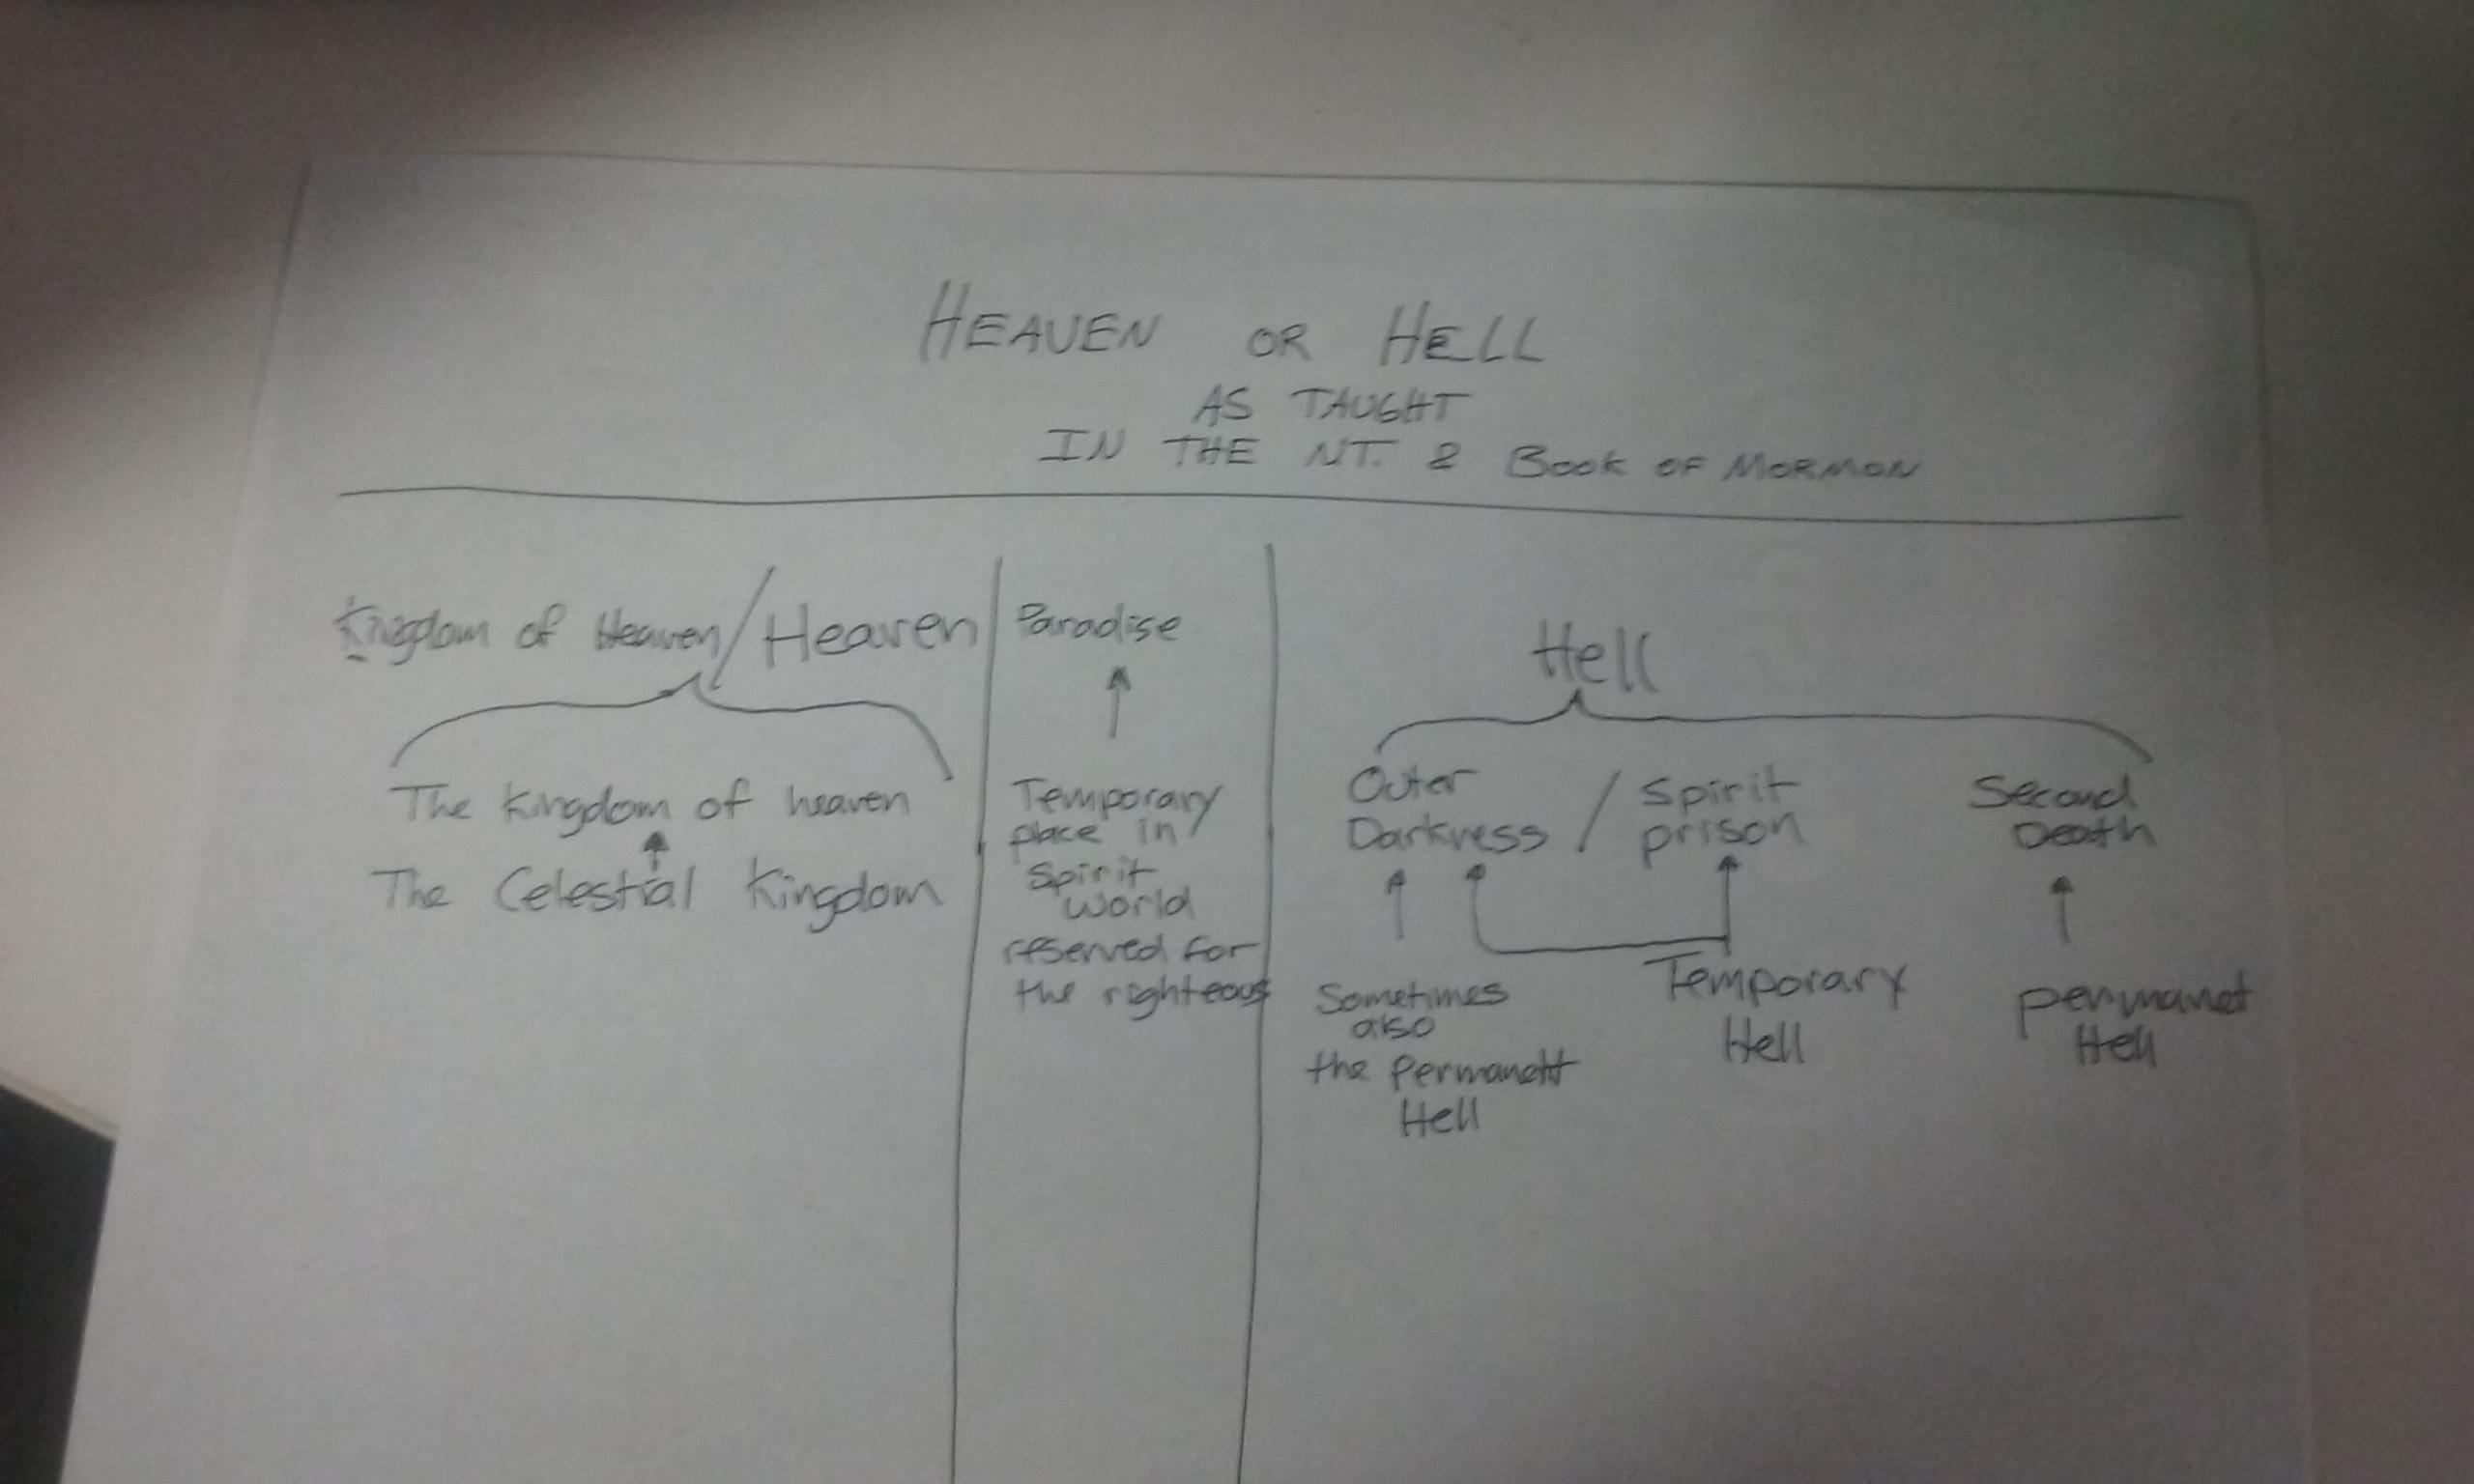 HEAVEN OR HELL
AS TAUGHT
IN THE NT. & BOOK OF MORMON
Kingdom of Heaven/Heaven
The Kingdom of heaven
The Celestial Kingdom
Paradise
Temporary
place in
Spirit
world
reserved for
the righteous
Hell
Outer / Spirit
Darkness prison
Second
Death
Sometimes
also
the permanett
Hell
Temporary
Hell
permanet
Hell